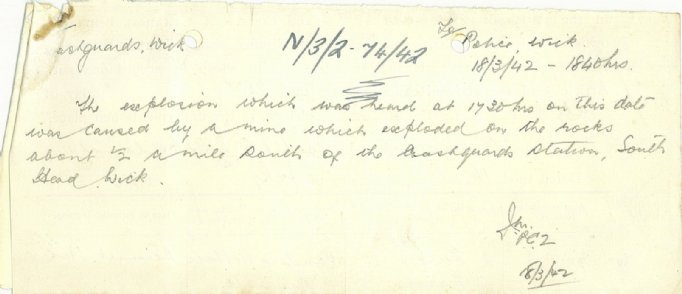 Coastguards, Wick
N/3/2-74/42
To Police, Wick.
18/3/42 - 1840hrs.
The explosion which was heard at 1730hrs on this date
was caused by a mine which exploded on the rocks
about ½ a mile South of the Coastguards Station, South
Head Wick.
P.C. 2
18/3/42